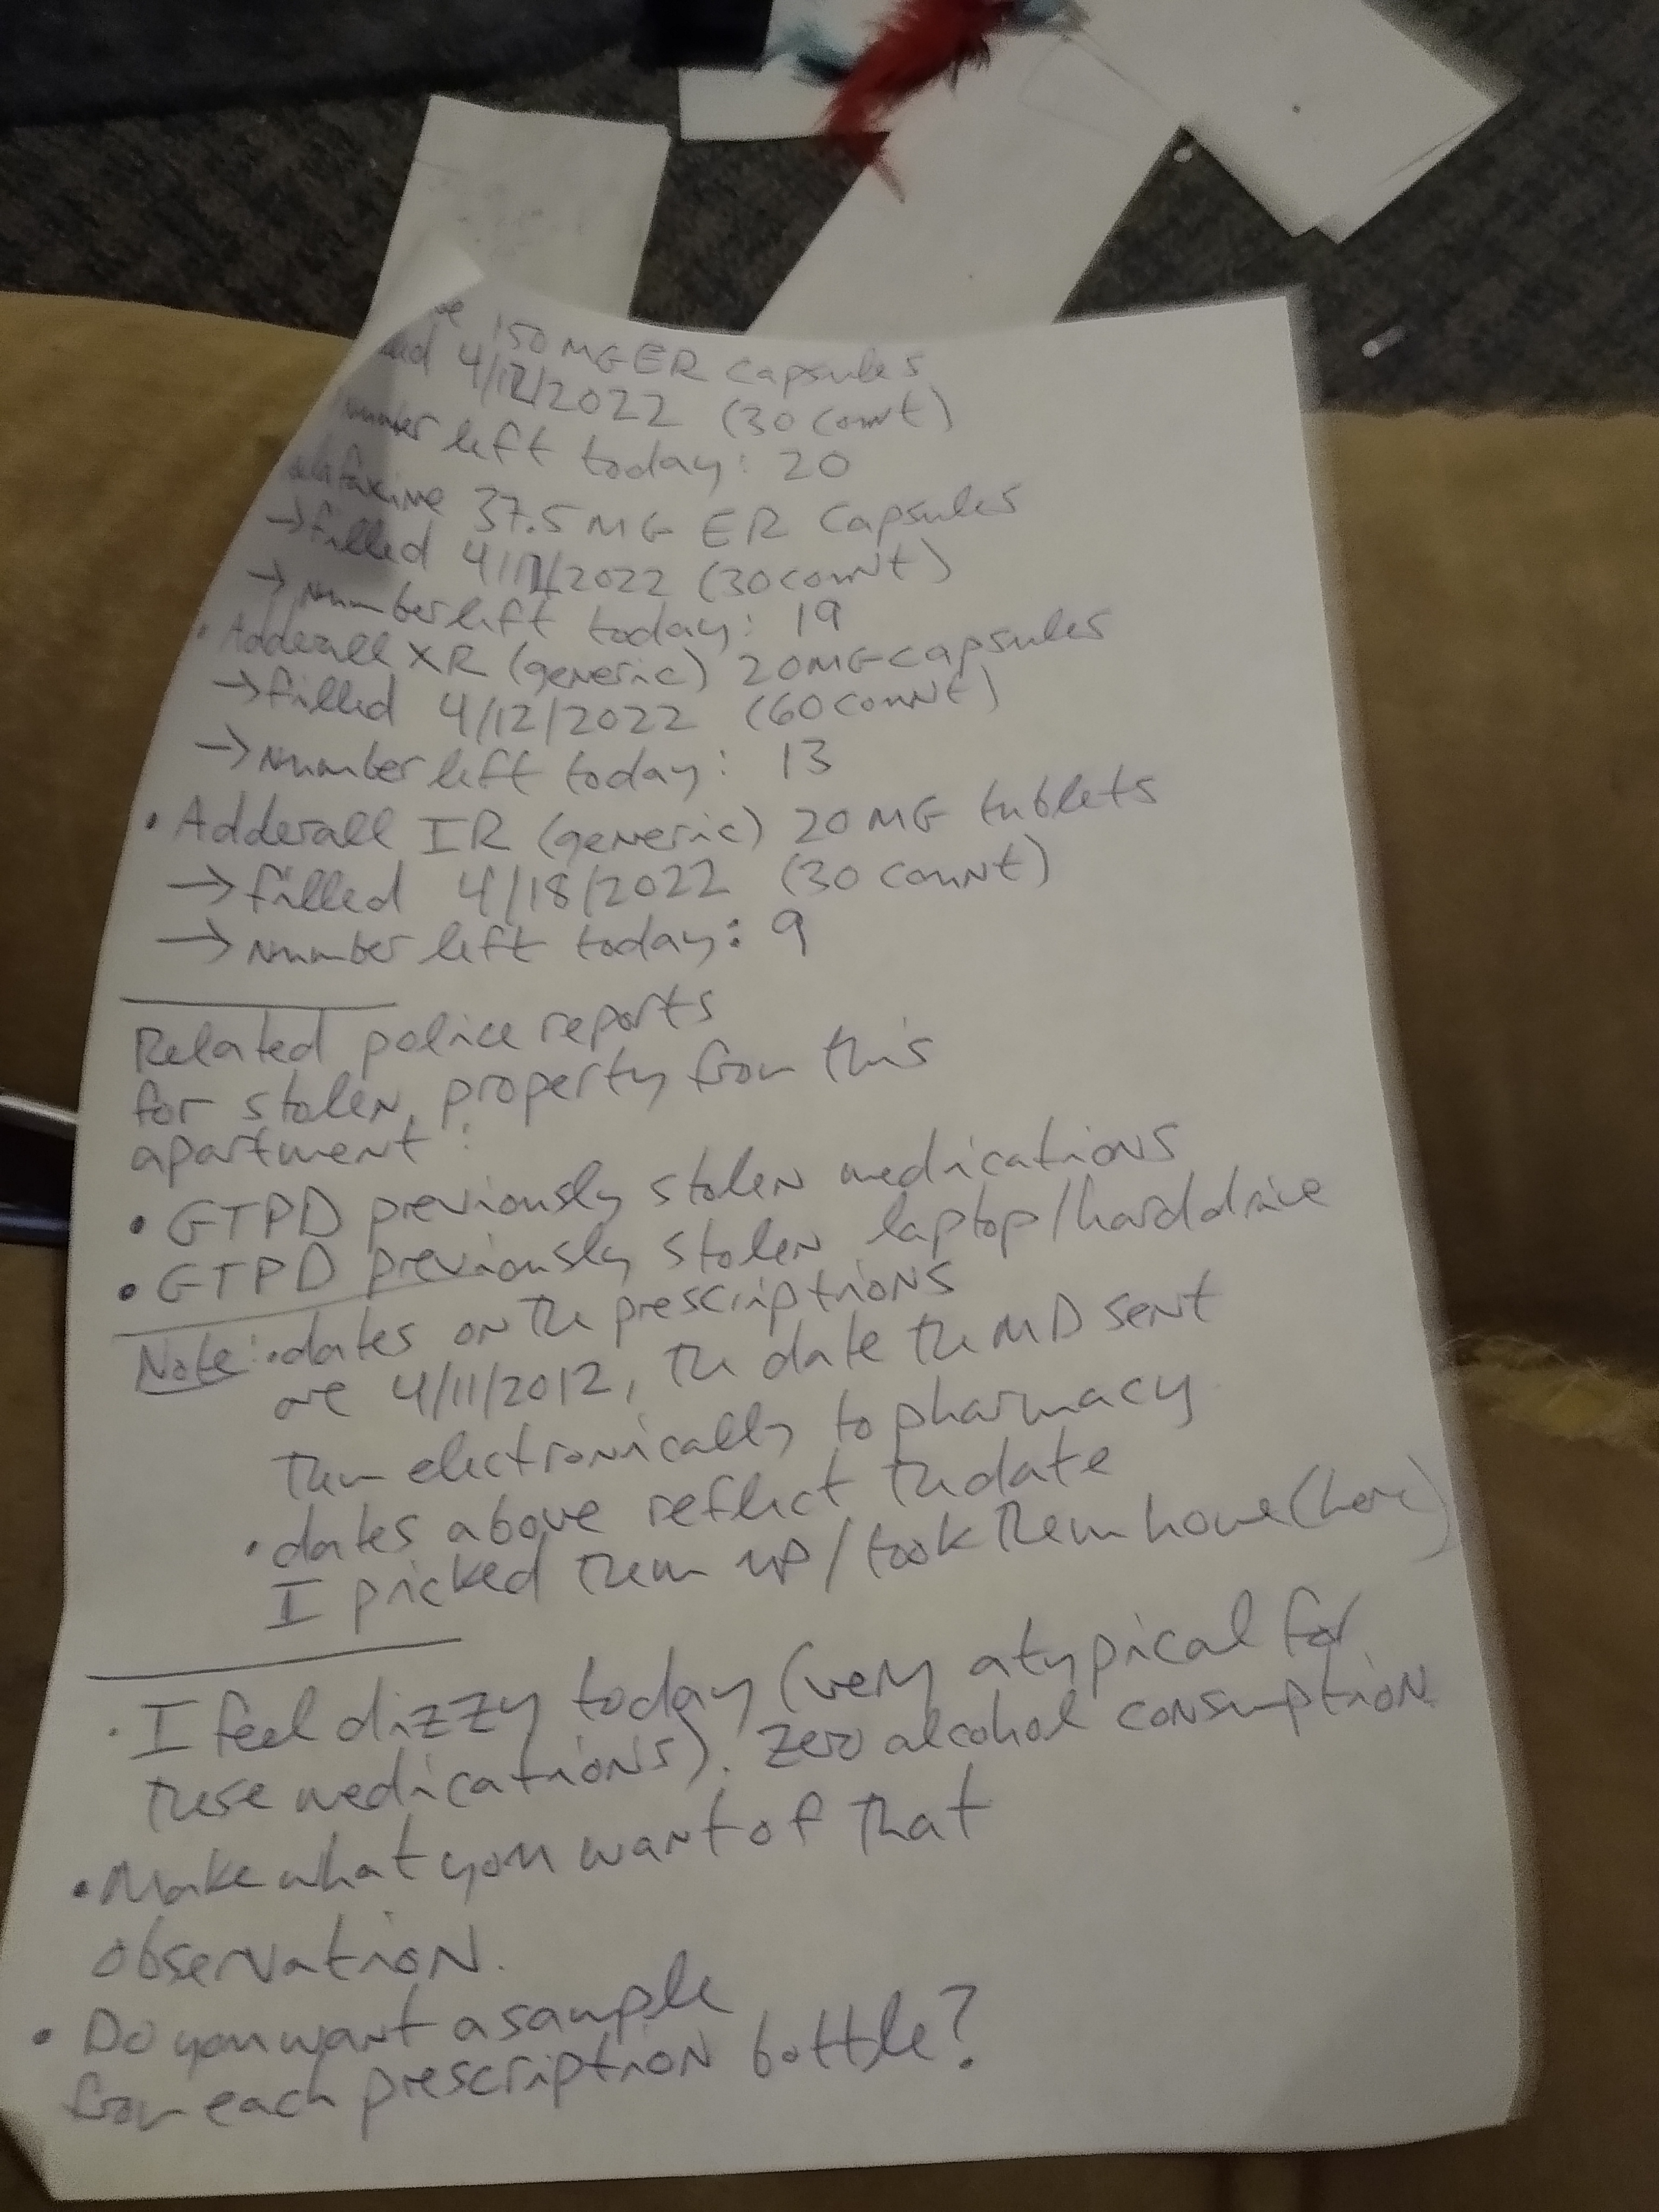 150 MG ER capsules
4/12/2022 (30 count)
number left today: 20
37.5 MG ER capsules
→ filled 4/12/2022 (30 count)
→ Number left today: 19
• Adderall XR (generic) 20MG capsules
→ filled 4/12/2022 (60 count)
→ Number left today: 13
• Adderall IR (generic) 20 MG tablets
→ filled 4/18/2022 (30 count)
→ Number left today: 9
Related police reports
for stolen property from this
apartment:
• GTPD previously stolen medications
• GTPD previously stolen laptop/harddrive
Note: • dates on the prescriptions
are 4/11/2012, the date the MD sent
them electronically to pharmacy
• dates above reflect the date
I picked them up / took them home (here)
• I feel dizzy today (very atypical for
these medications). Zero alcohol consumption
• Make what you want of that
observation.
• Do you want a sample
from each prescription bottle?